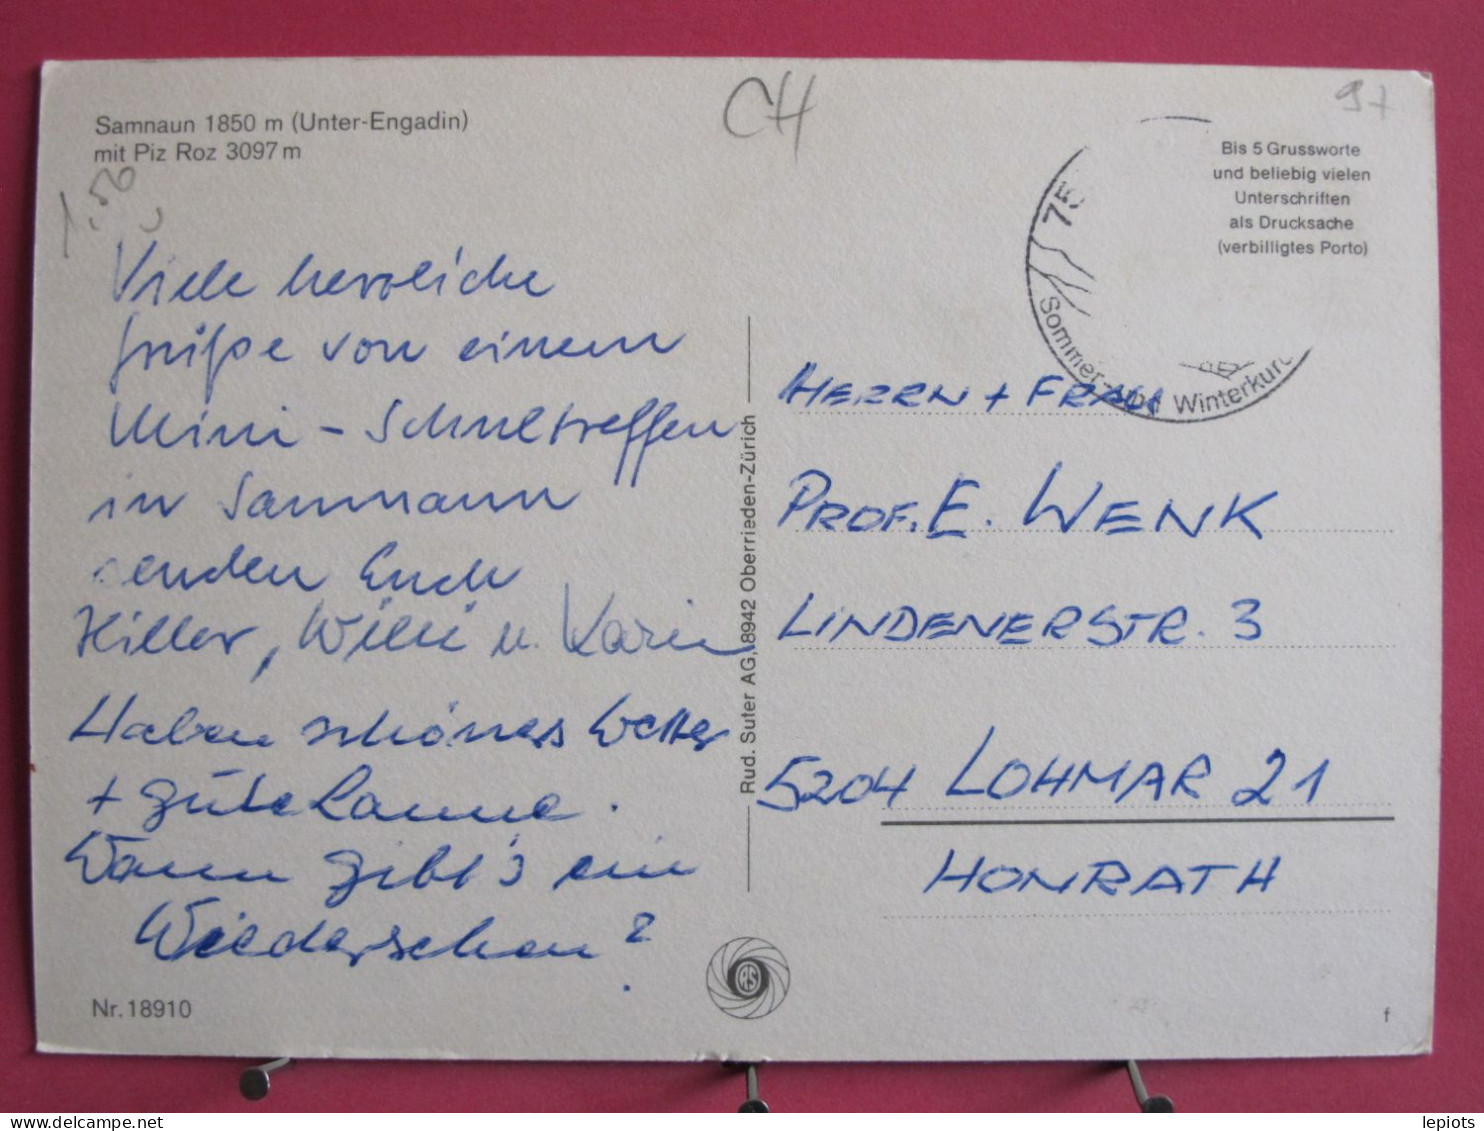 Samnaun 1850 m (Unter-Engadin)
mit Piz Roz 3097 m
1,50
CH
97
Bis 5 Grussworte
und beliebig vielen
Unterschriften
als Drucksache
(verbilligtes Porto)
75
Sommer- und Winterkur
Viele herzliche
Grüße von einem
Mini - Schultreffen
in Samnaun
senden Euch
Hiller, Willi u. Karin
Haben schönes Wetter
+ gute Laune.
Wann gibt's ein
Wiedersehen?
Rud. Suter AG, 8942 Oberrieden-Zürich
HERRN + FRAU
PROF. E. WENK
LINDENERSTR. 3
5204 LOHMAR 21
HONRATH
RS
Nr. 18910
f
delcampe.net
lepiots